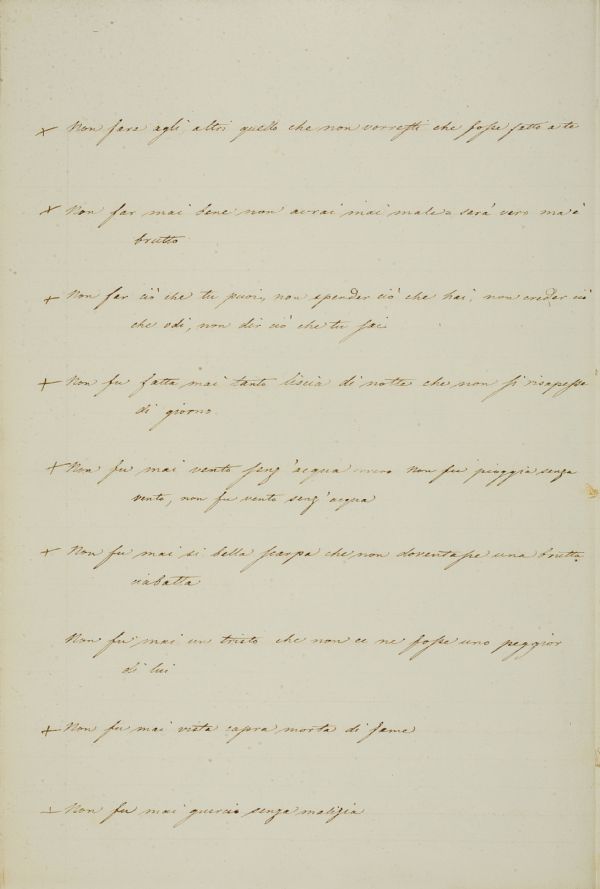 + Non fare agli altri quello che non vorresti che fosse fatto a te
+ Non far mai bene non avrai mai male = sarà vero ma è
brutto
+ Non far ciò che tu puoi, non spender ciò che hai, non creder ciò
che odi, non dir ciò che tu sai
+ Non fu fatta mai tanto liscia di notte che non si risapesse
di giorno.
+ Non fu mai vento senz'acqua ovvero Non fu pioggia senza
vento, non fu vento senz'acqua
+ Non fu mai si bella scarpa che non doventasse una brutta
ciabatta
Non fu mai un tristo che non ce ne fosse uno peggior
di lui
+ Non fu mai vista capra morta di fame
+ Non fu mai guercio senza malizia